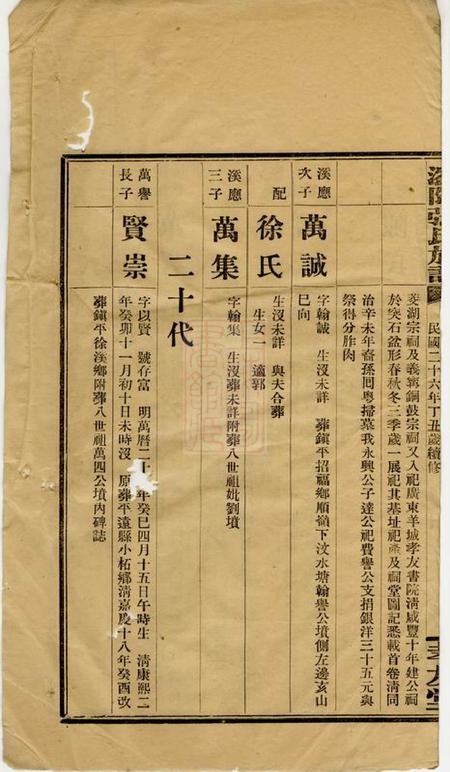 民國二十六年丁丑歲續修
菱湖宗祠及義寧銅鼓宗祠又入祀廣東羊城孝友書院清咸豐十年建公祠
於突石盆形春秋冬三季歲一展祀其基址祀產及祠堂圖記悉載首卷清同
治辛未年裔孫囘粵掃墓我永興公子達公祀費譽公支捐銀洋三十五元與
祭得分胙肉
溪應次子 萬誠 字翰誠 生沒未詳 葬鎮平招福鄉順嶺下汶水塘翰譽公墳側左邊亥山
巳向
配 徐氏 生沒未詳 與夫合葬
生女一 適郭
溪應三子 萬集 字翰集 生沒葬未詳附葬八世祖妣劉墳
二十代
萬譽長子 賢崇 字以賢 號存富 明萬曆二十 年癸巳四月十五日午時生 清康熙二
年癸卯十一月初十日未時沒 原葬平遠縣小柘鄉清嘉慶十八年癸酉改
葬鎮平徐溪鄉附葬八世祖萬四公墳內碑誌